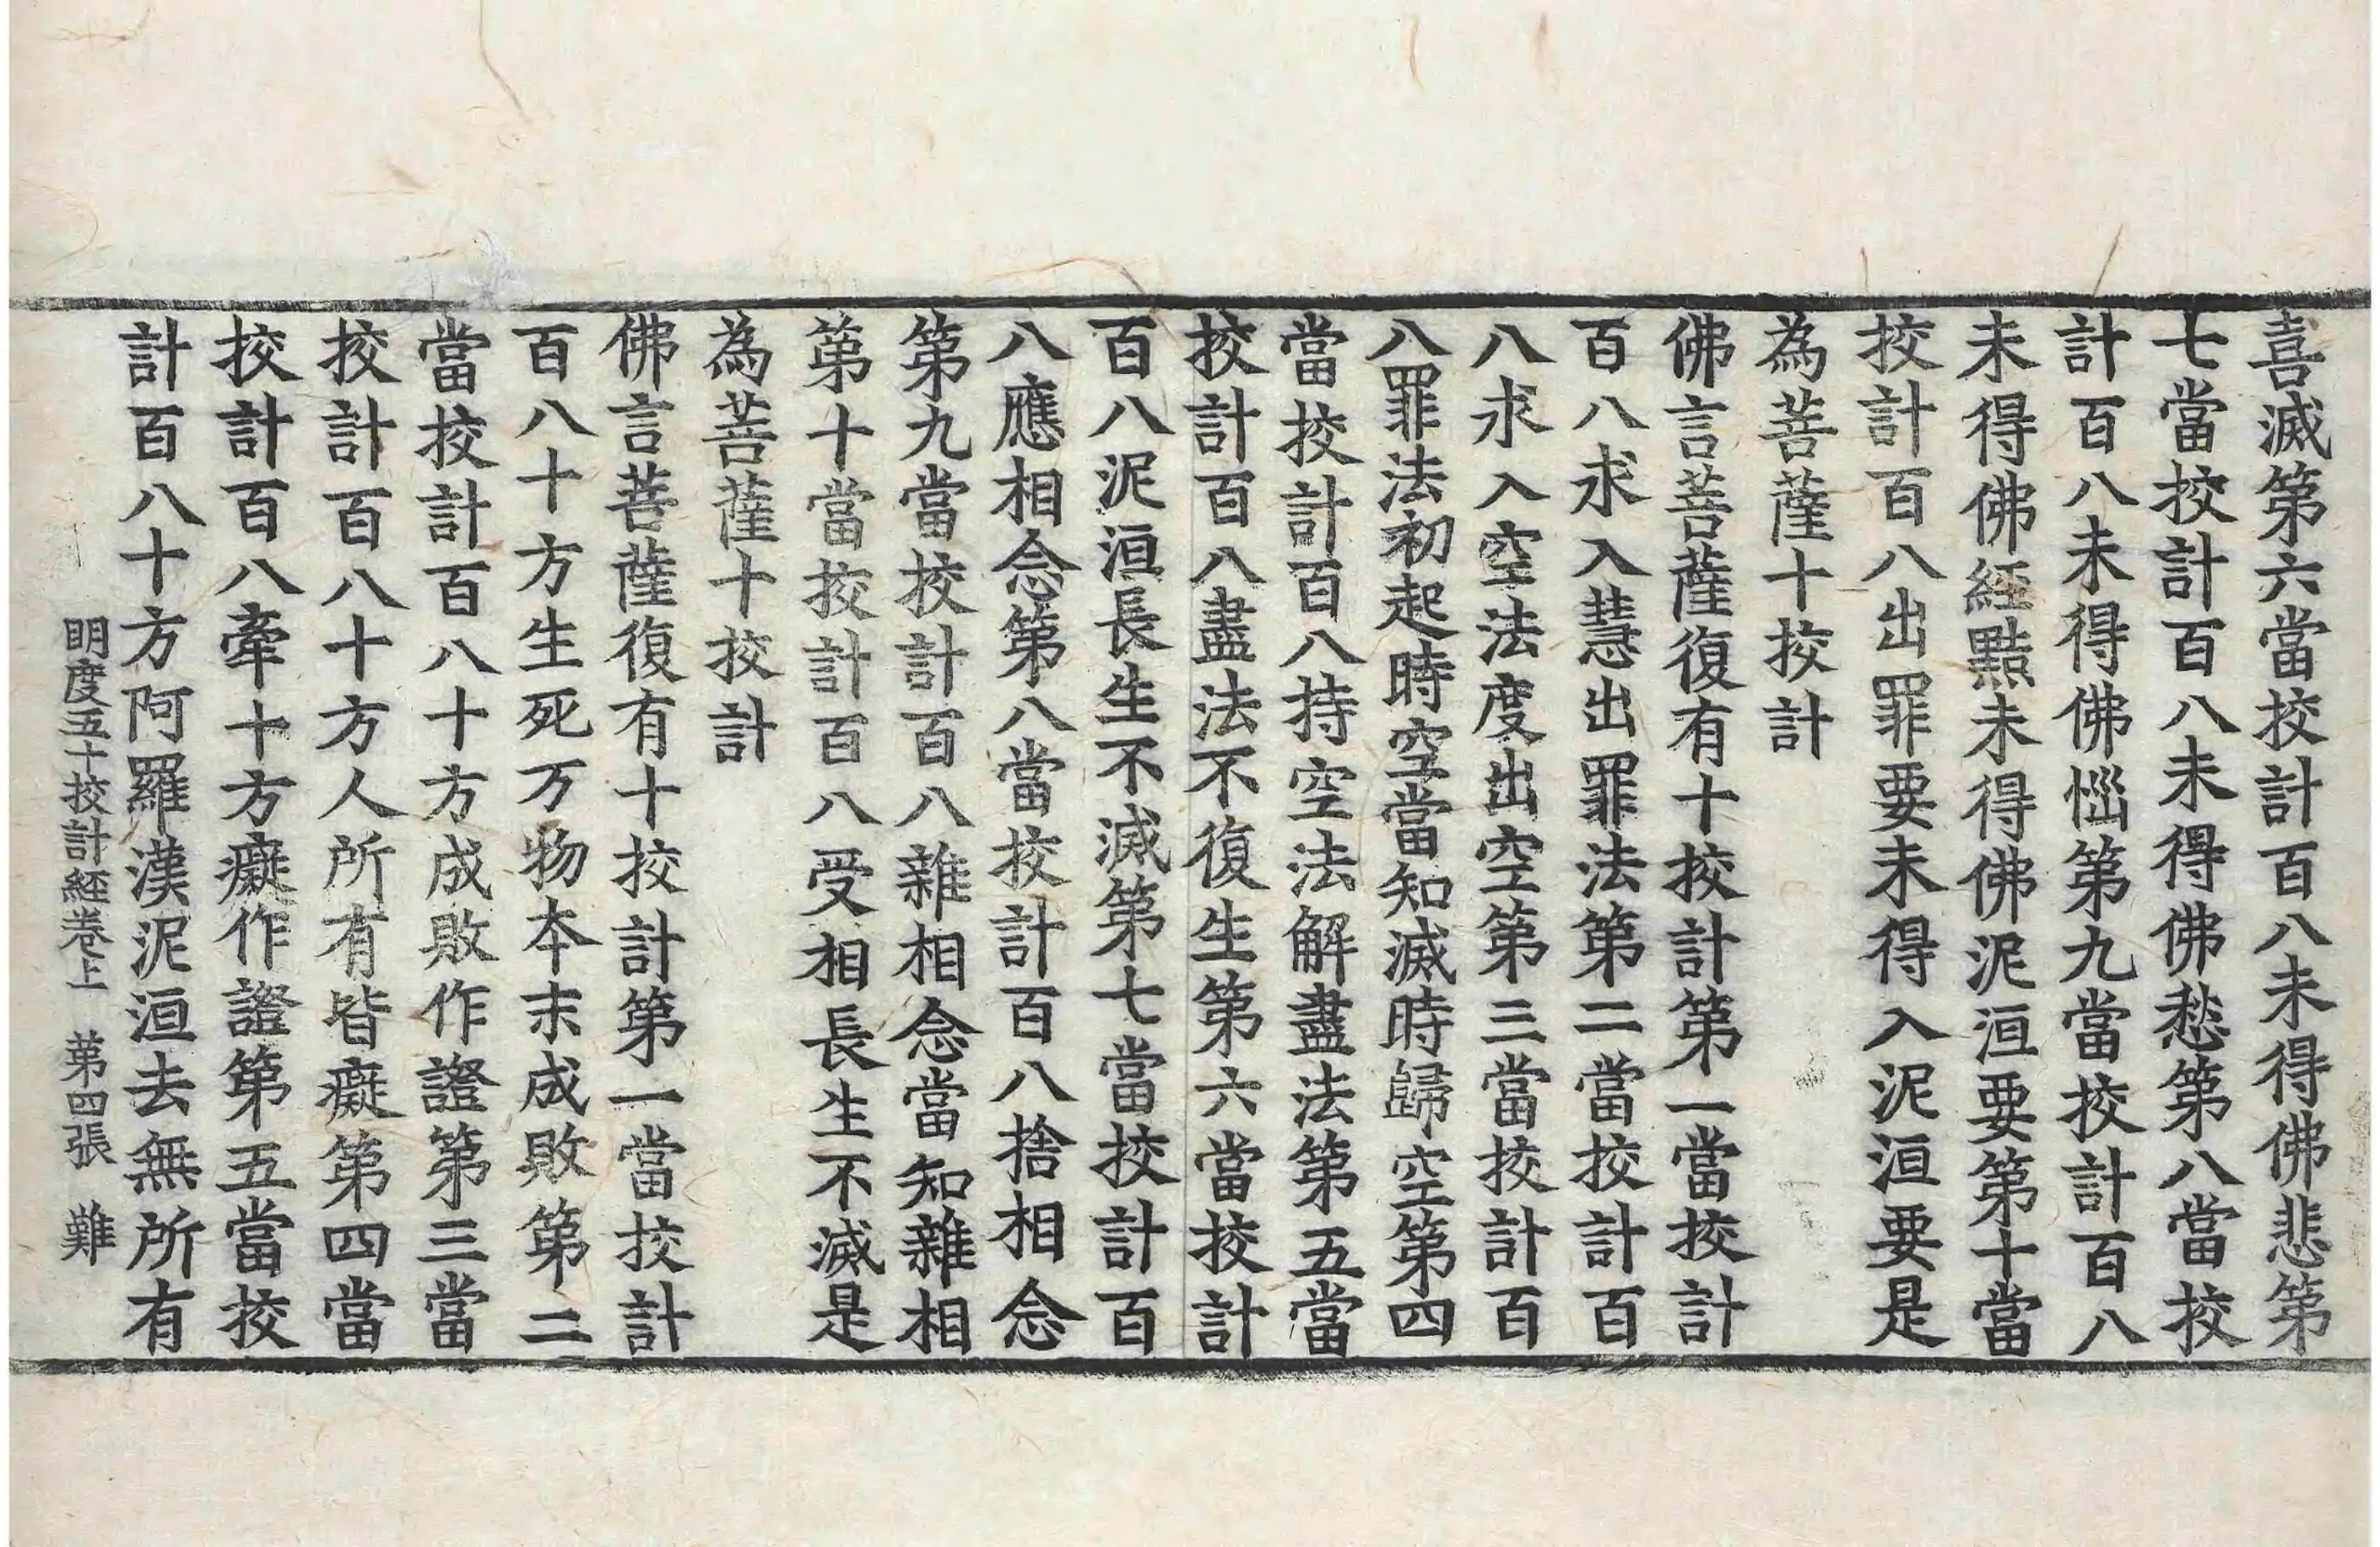 喜滅第六當挍計百八未得佛悲第
七當挍計百八未得佛愁第八當挍
計百八未得佛惱第九當挍計百八
未得佛經黠未得佛泥洹要第十當
挍計百八出罪要未得入泥洹要是
為菩薩十挍計
佛言菩薩復有十挍計第一當挍計
百八求入慧出罪法第二當挍計百
八求入空法度出空第三當挍計百
八罪法初起時空當知滅時歸空第四
當挍計百八持空法解盡法第五當
挍計百八盡法不復生第六當挍計
百八泥洹長生不滅第七當挍計百
八應相念第八當挍計百八捨相念
第九當挍計百八雜相念當知雜相
第十當挍計百八受相長生不滅是
為菩薩十挍計
佛言菩薩復有十挍計第一當挍計
百八十方生死万物本末成敗第二
當挍計百八十方成敗作證第三當
挍計百八十方人所有皆癡第四當
挍計百八牽十方癡作證第五當挍
計百八十方阿羅漢泥洹去無所有
明度五十挍計經卷上 第四張 難